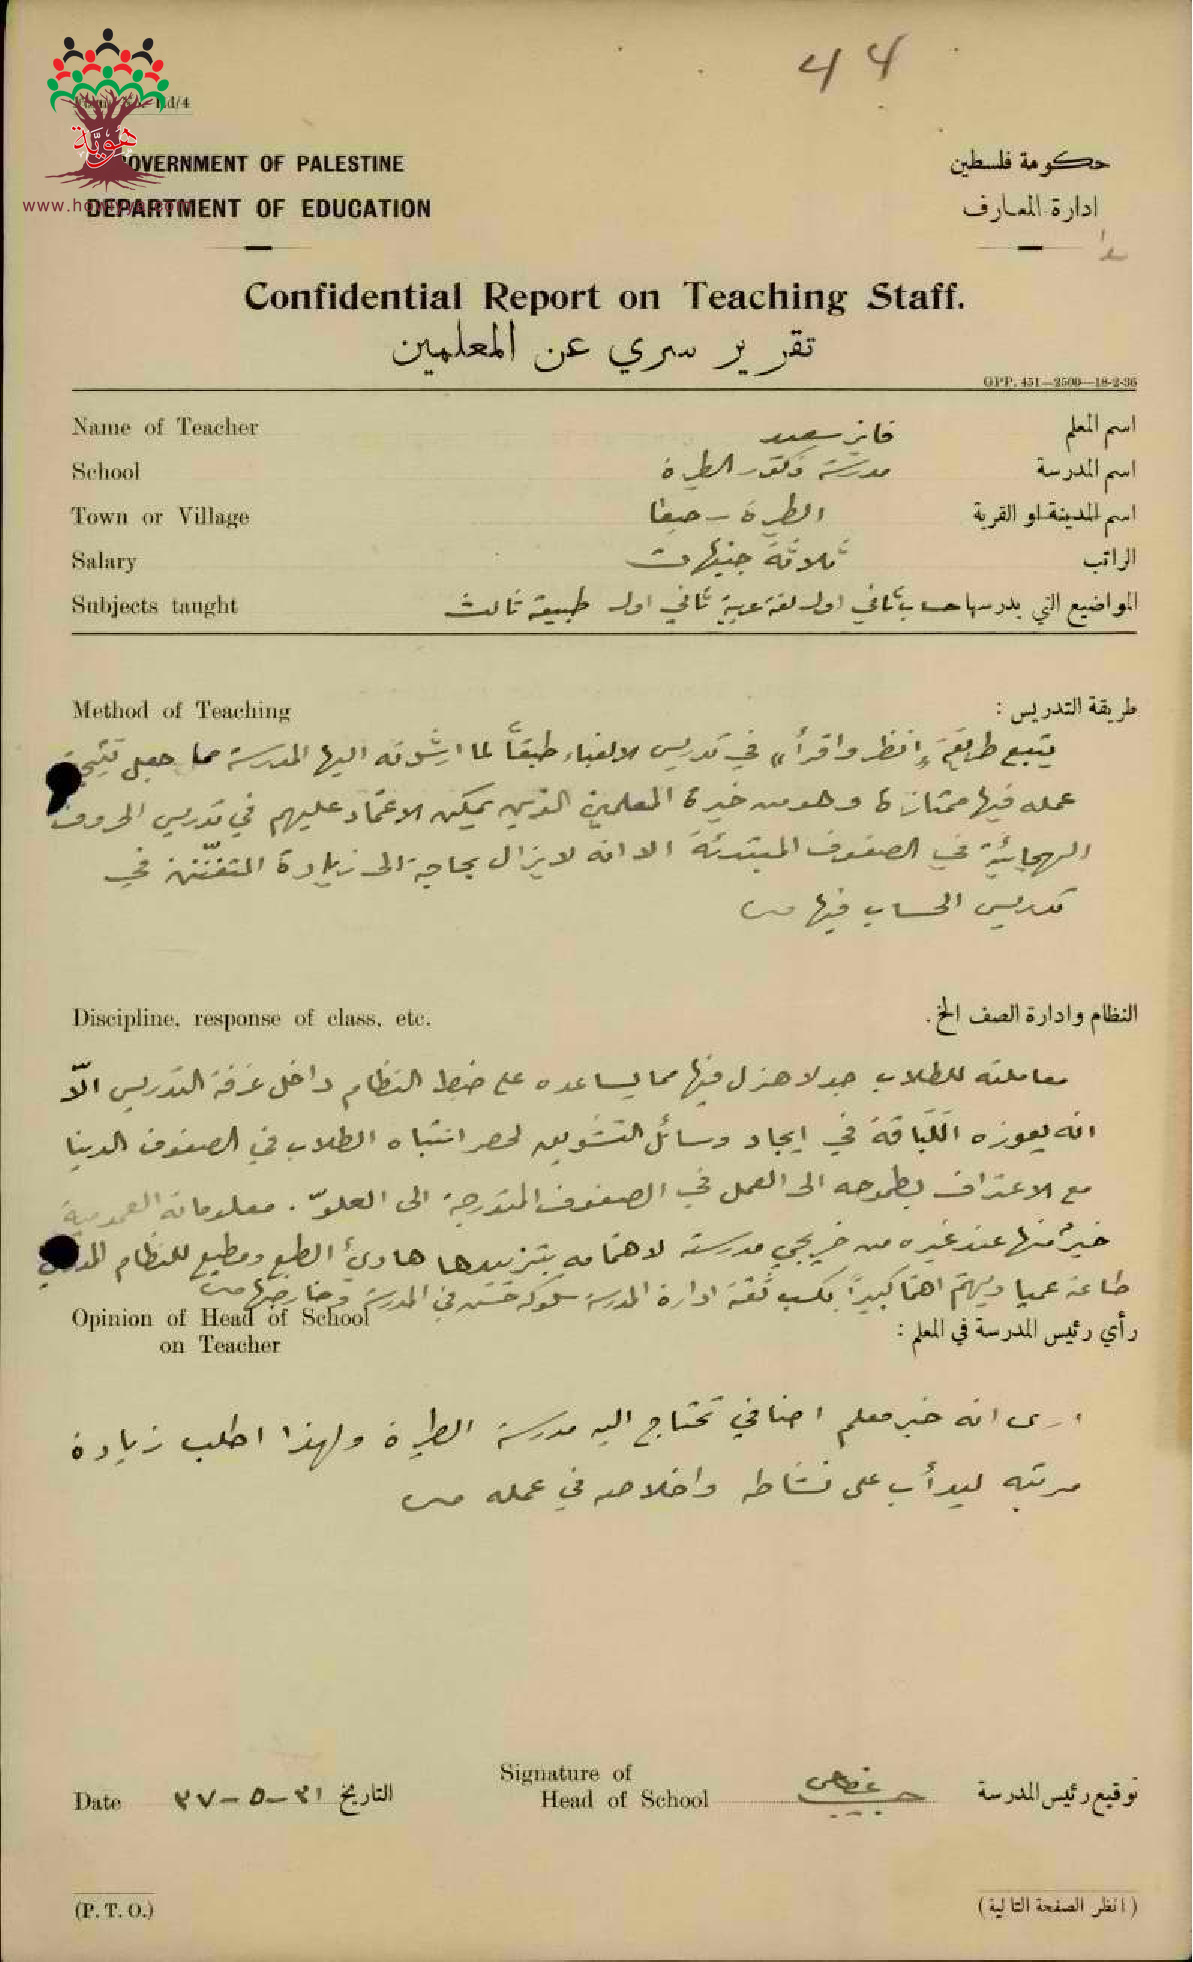 44
Ed/4
هَوِيَّة
www.howiyya.com
GOVERNMENT OF PALESTINE
حكومة فلسطين
DEPARTMENT OF EDUCATION
ادارة المعارف
Confidential Report on Teaching Staff.
تقرير سري عن المعلمين
GPP. 451—2500—18-2-36
Name of Teacher فايز سعيد اسم المعلم
School مدرسة ذكور الطيرة اسم المدرسة
Town or Village الطيرة - حيفا اسم المدينة او القرية
Salary ثلاثة جنيهات الراتب
Subjects taught المواضيع التي يدرسها حساب ثاني اول لغة عربية ثاني اول طبيعة ثالث
Method of Teaching طريقة التدريس :
يتبع طريقة « انظر واقرأ » في تدريس الالفباء طبقاً لما ارشدته اليها المدرسة مما جعل نتيجة
عمله فيها ممتازة وهو من خيرة المعلمين الذين يمكن الاعتماد عليهم في تدريس الحروف
الهجائية في الصفوف المبتدئة الا انه لا يزال بحاجة الى زيادة التفنّن في
تدريس الحساب فيها
Discipline, response of class, etc. النظام وادارة الصف الخ.
معاملته للطلاب جد لا هزل فيها مما يساعده على ضبط النظام داخل غرفة التدريس الاّ
انه يعوزه اللّباقة في ايجاد وسائل التشويق لحصر انتباه الطلاب في الصفوف الدنيا
مع الاعتراف بطموحه الى العمل في الصفوف المتدرجة الى العلوّ. معلوماته العمومية
خيرٌ منها عند غيره من خريجي مدرسته لاهتمامه بتزييدها هادئ الطبع ومطيع للنظام المدرسي
طاعة عميا ويهتم اهتماماً كبيراً بكسب ثقة ادارة المدرسة سلوكه حسن في المدرسة وخارجها
Opinion of Head of School
on Teacher رأي رئيس المدرسة في المعلم :
ارى انه خير معلم اضافي تحتاج اليه مدرسة الطيرة ولهذا اطلب زيادة
مرتبه ليدأب على نشاطه واخلاصه في عمله
Date ٣١-٥-٣٧ التاريخ
Signature of
Head of School توقيع رئيس المدرسة
(P. T. O.) (انظر الصفحة التالية)